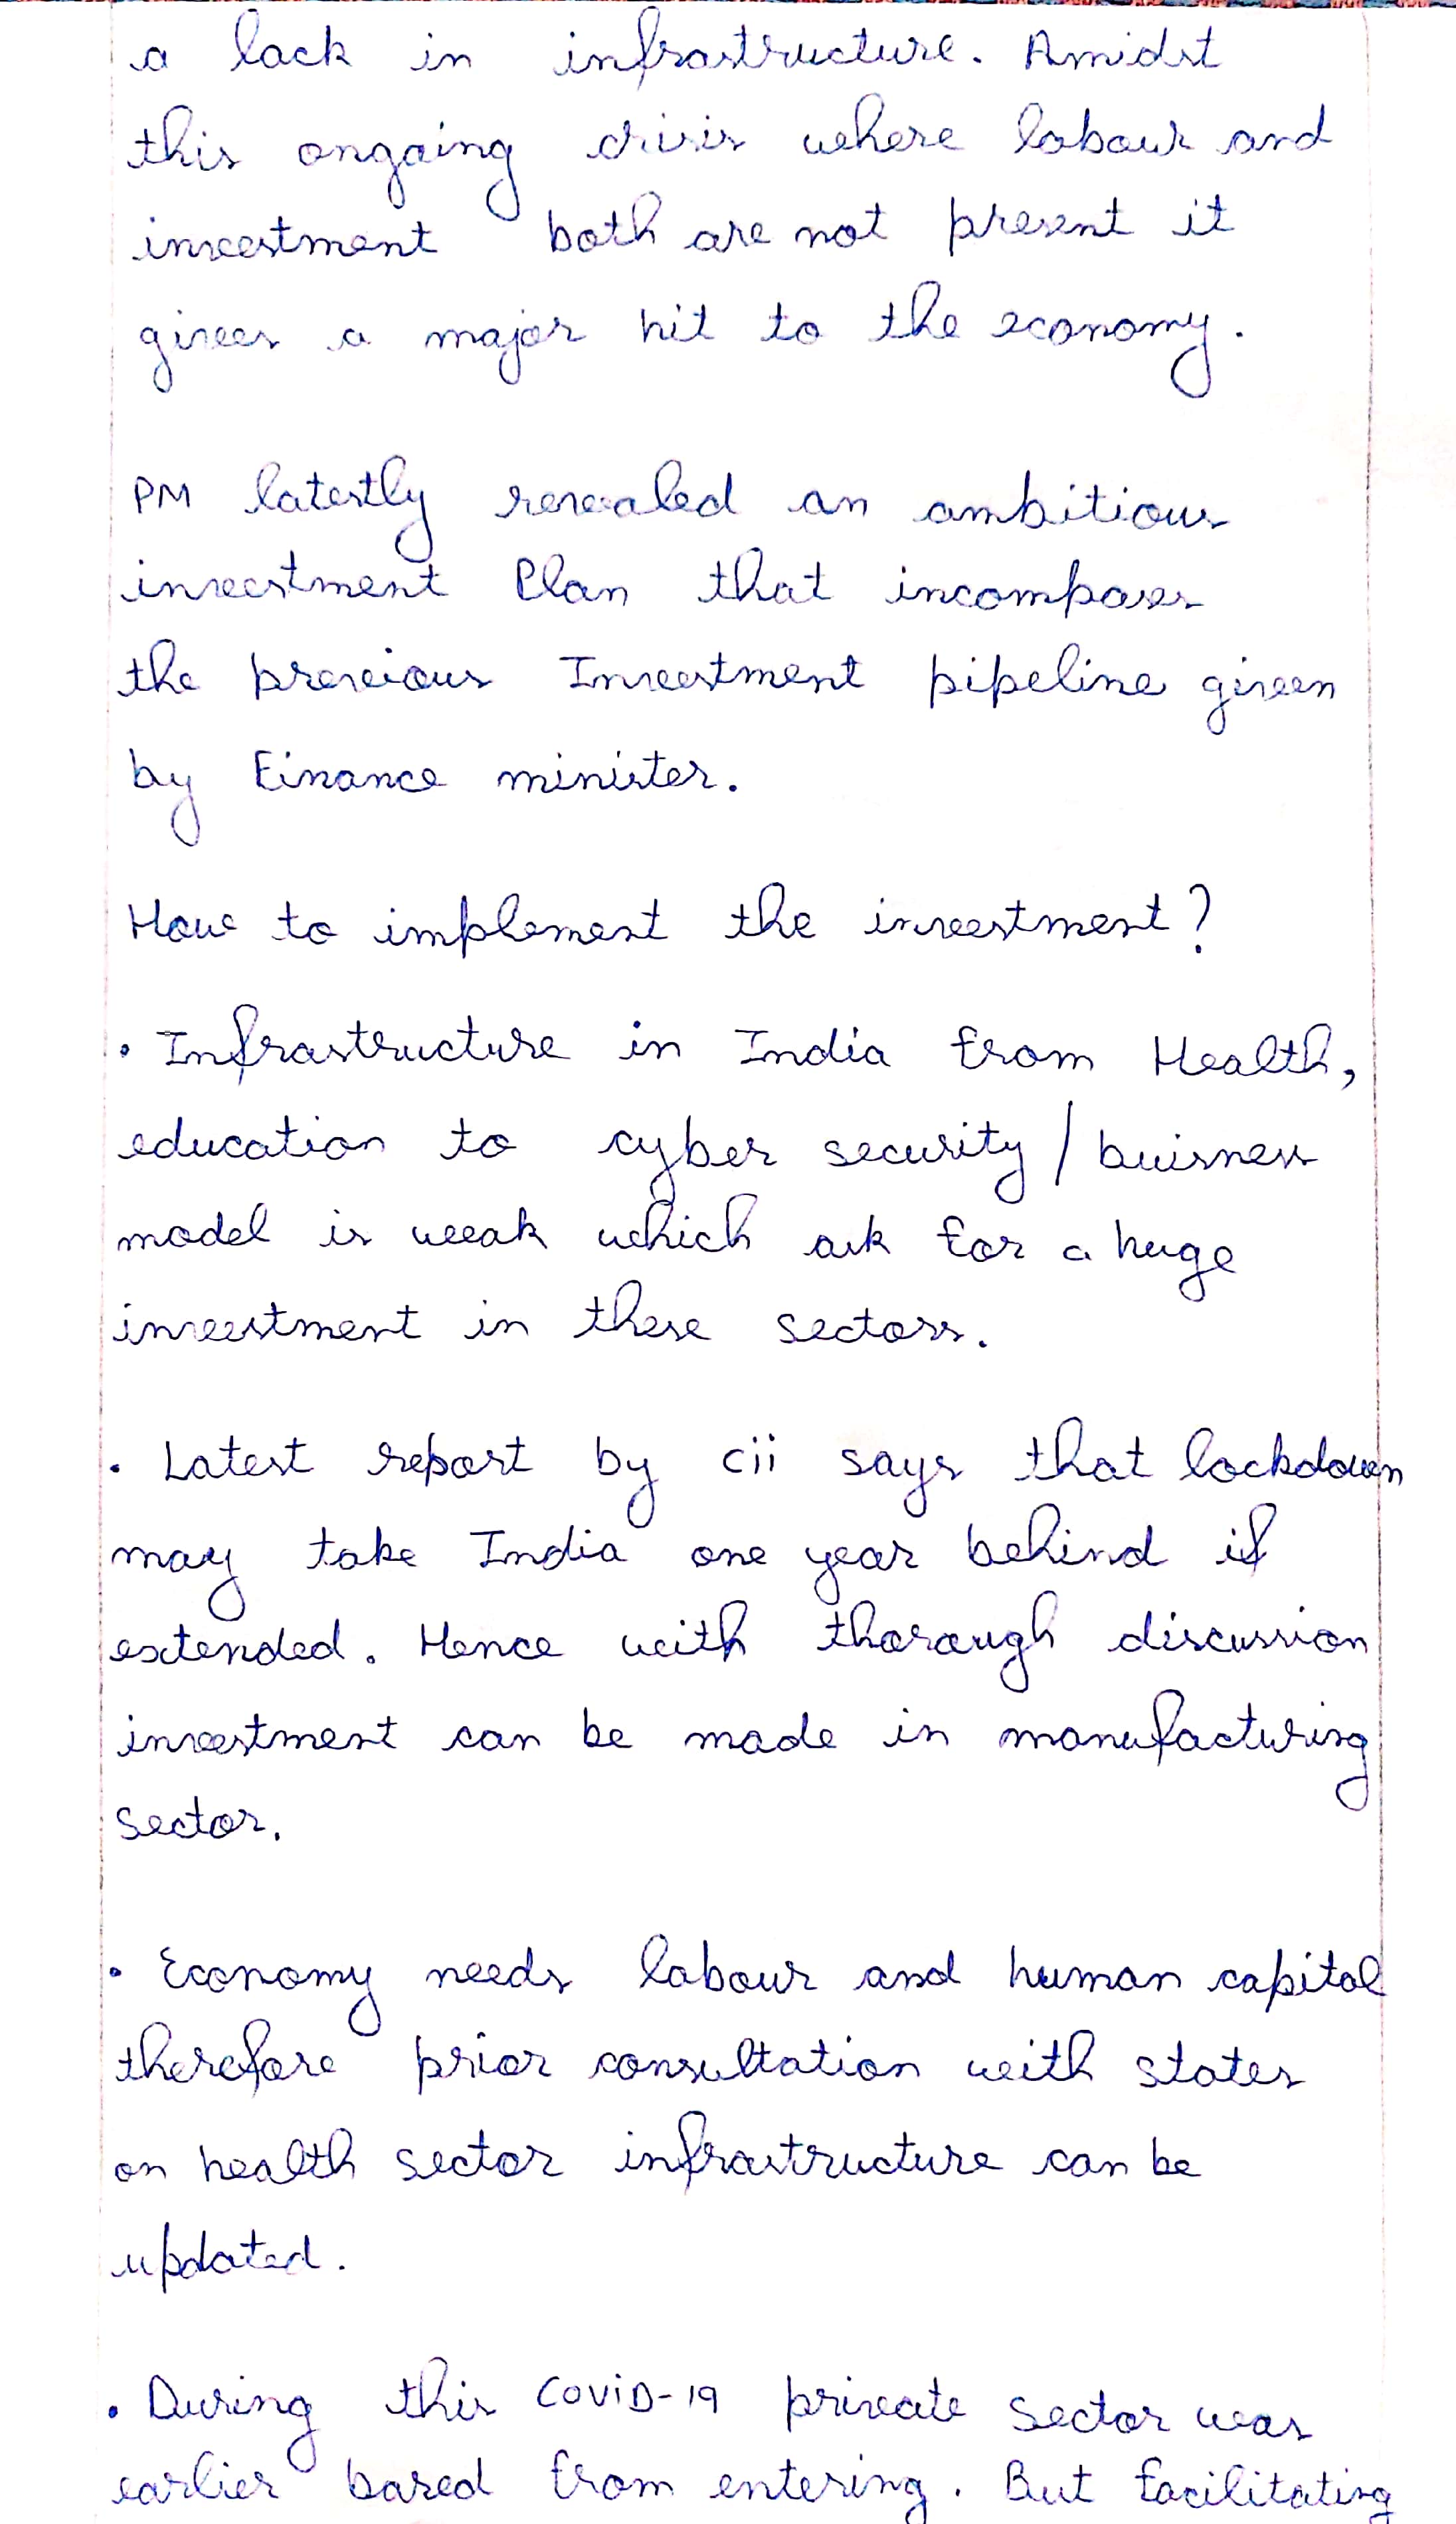 a lack in infrastructure. Amidst
this ongoing crisis where labour and
investment both are not present it
gives a major hit to the economy.
PM latestly revealed an ambitious
investment Plan that incompases
the previous Investment pipeline given
by Finance minister.
How to implement the investment?
• Infrastructure in India from Health,
education to cyber security / buisness
model is weak which ask for a huge
investment in these sectors.
• Latest report by cii says that lockdown
may take India one year behind if
extended. Hence with thorough discussion
investment can be made in manufacturing
sector.
• Economy needs labour and human capital
therefore prior consultation with states
on health sector infrastructure can be
updated.
• During this COVID-19 private sector was
earlier bared from entering. But facilitating